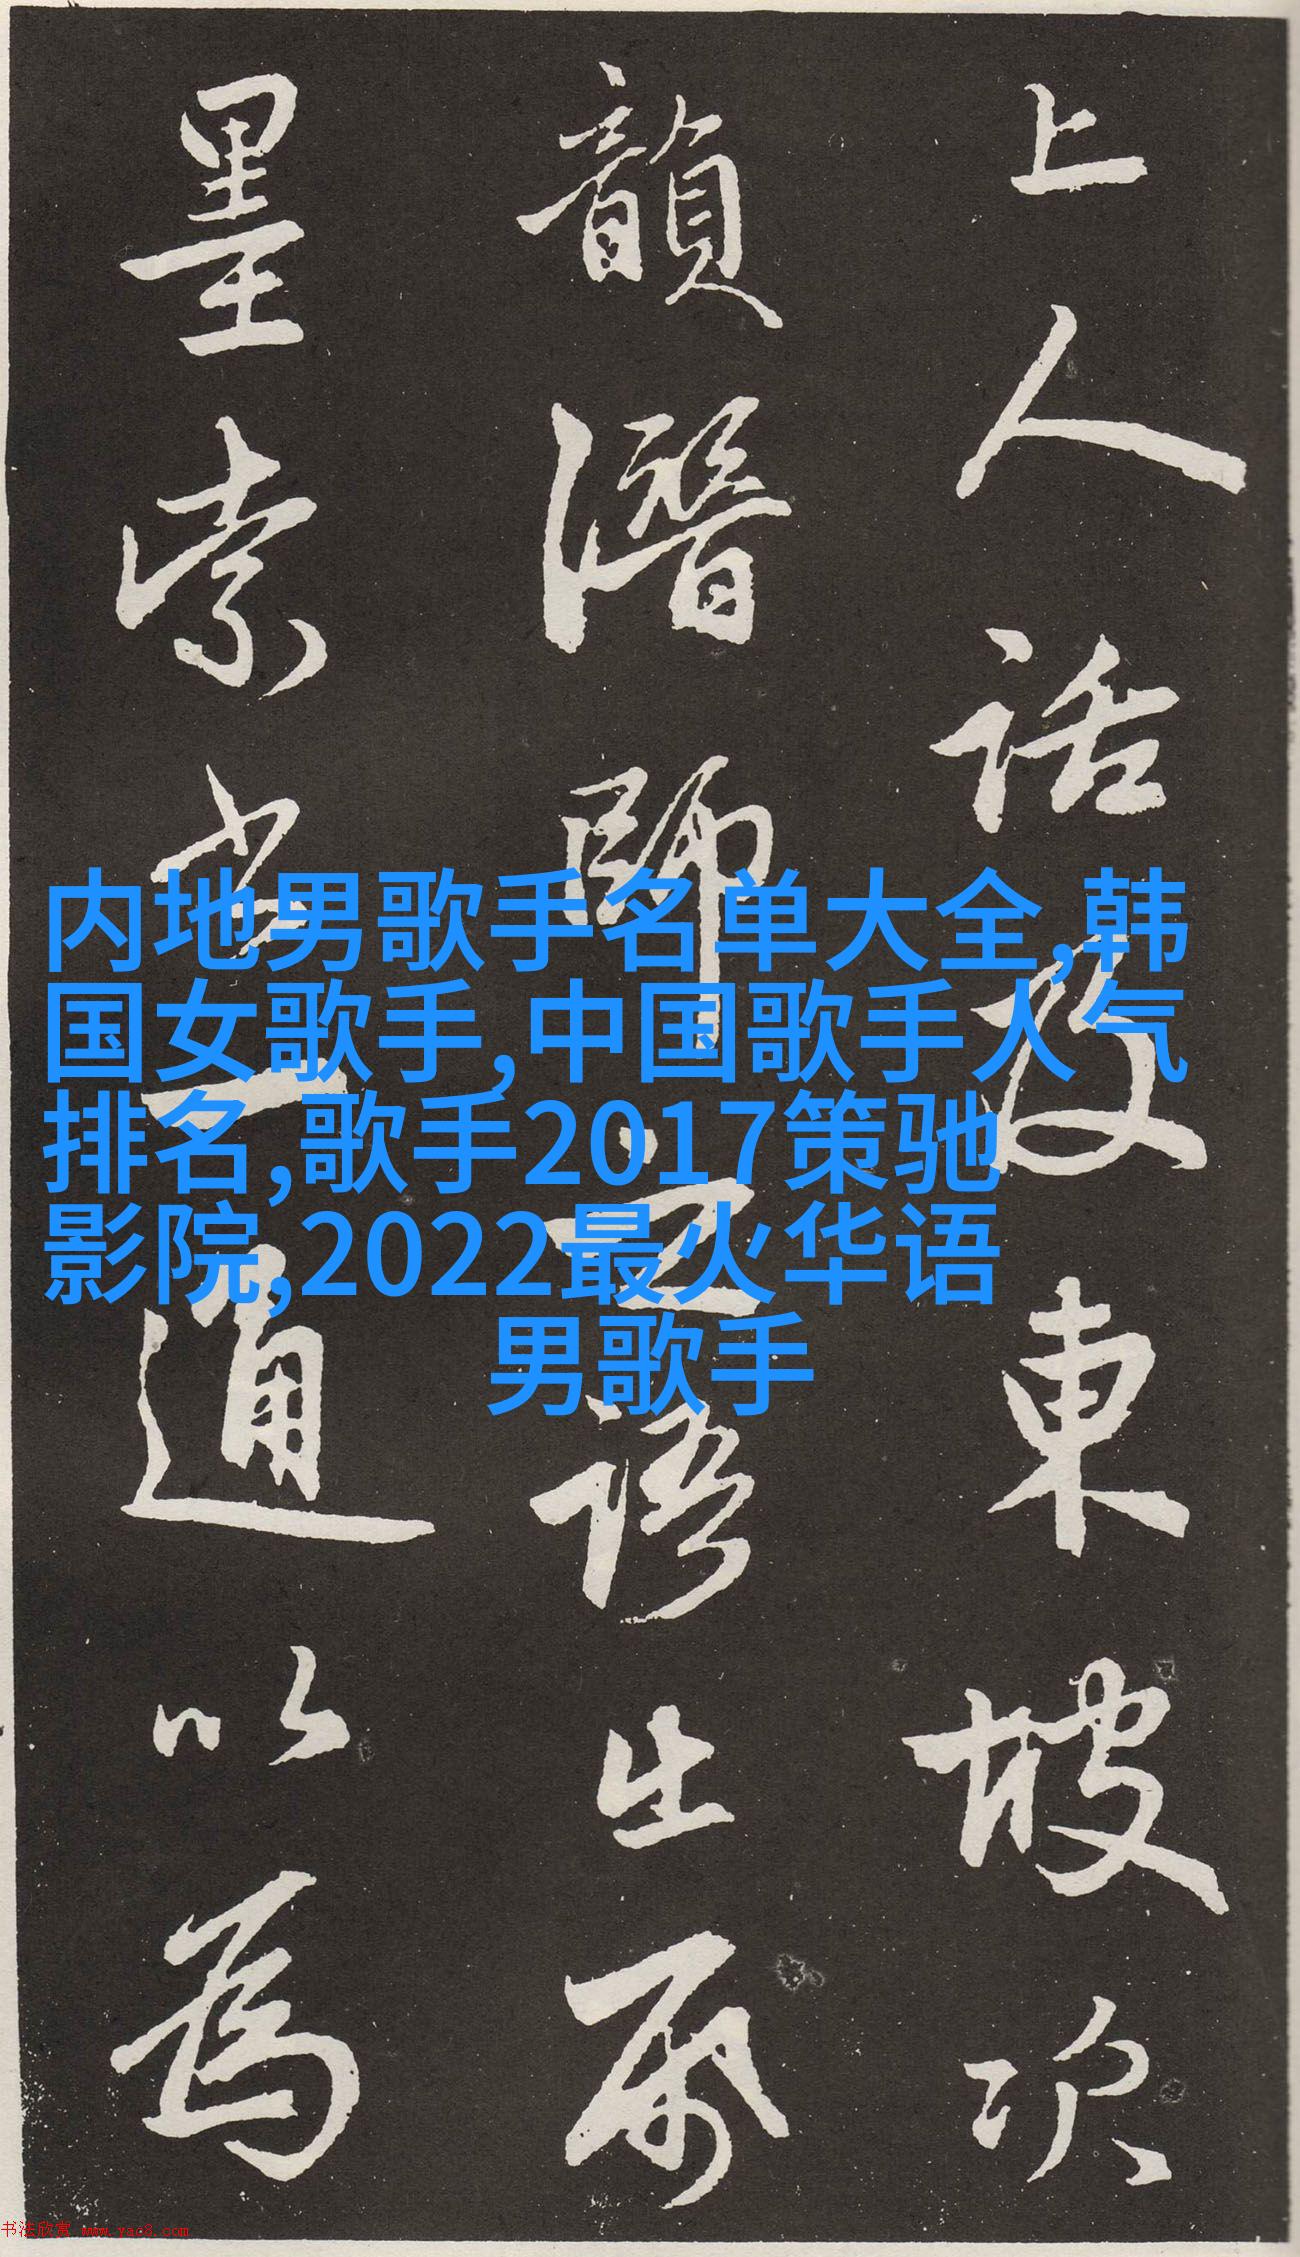 上人話及東坡次
韻潛師語
墨索一通以為
内地男歌手名单大全,韩
国女歌手,中国歌手人气
排名,歌手2017策驰
影院,2022最火华语
男歌手
书法欣赏 www.yac8.com